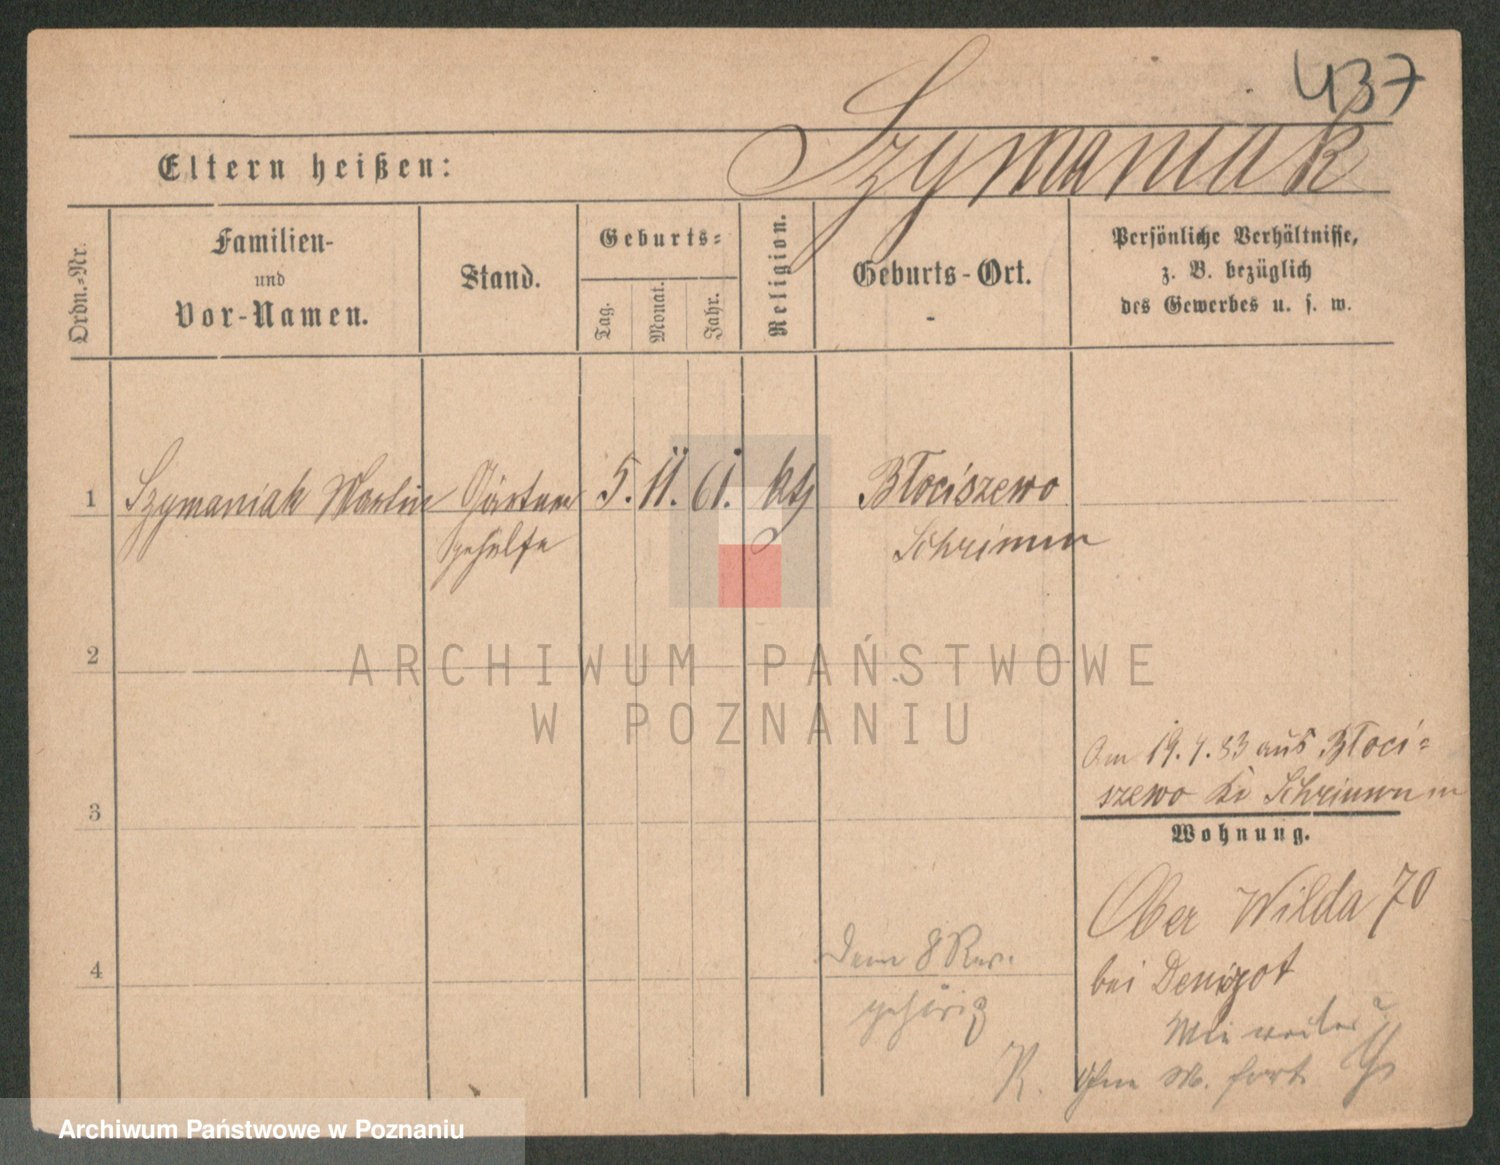 437
Szymaniak
Eltern heißen:
Ordn.-Nr.
Familien-
und
Vor-Namen.
Stand.
Geburts-
Tag.
Monat.
Jahr.
Religion.
Geburts-Ort.
Persönliche Verhältnisse,
z. B. bezüglich
des Gewerbes u. s. w.
1 Szymaniak Martin Gärtner 5. 11. 61. kth Błociszewo
gehülfe Schrimm
2
ARCHIWUM PAŃSTWOWE
W POZNANIU
Am 19. 4. 83 aus Błoci=
szewo Kr Schrimm
3
Wohnung.
Ober Wilda 70
4
Dem 8 Rev.
bei Denizot
gehörig
Wie weiter?
R.
Ohne M. fort
Archiwum Państwowe w Poznaniu